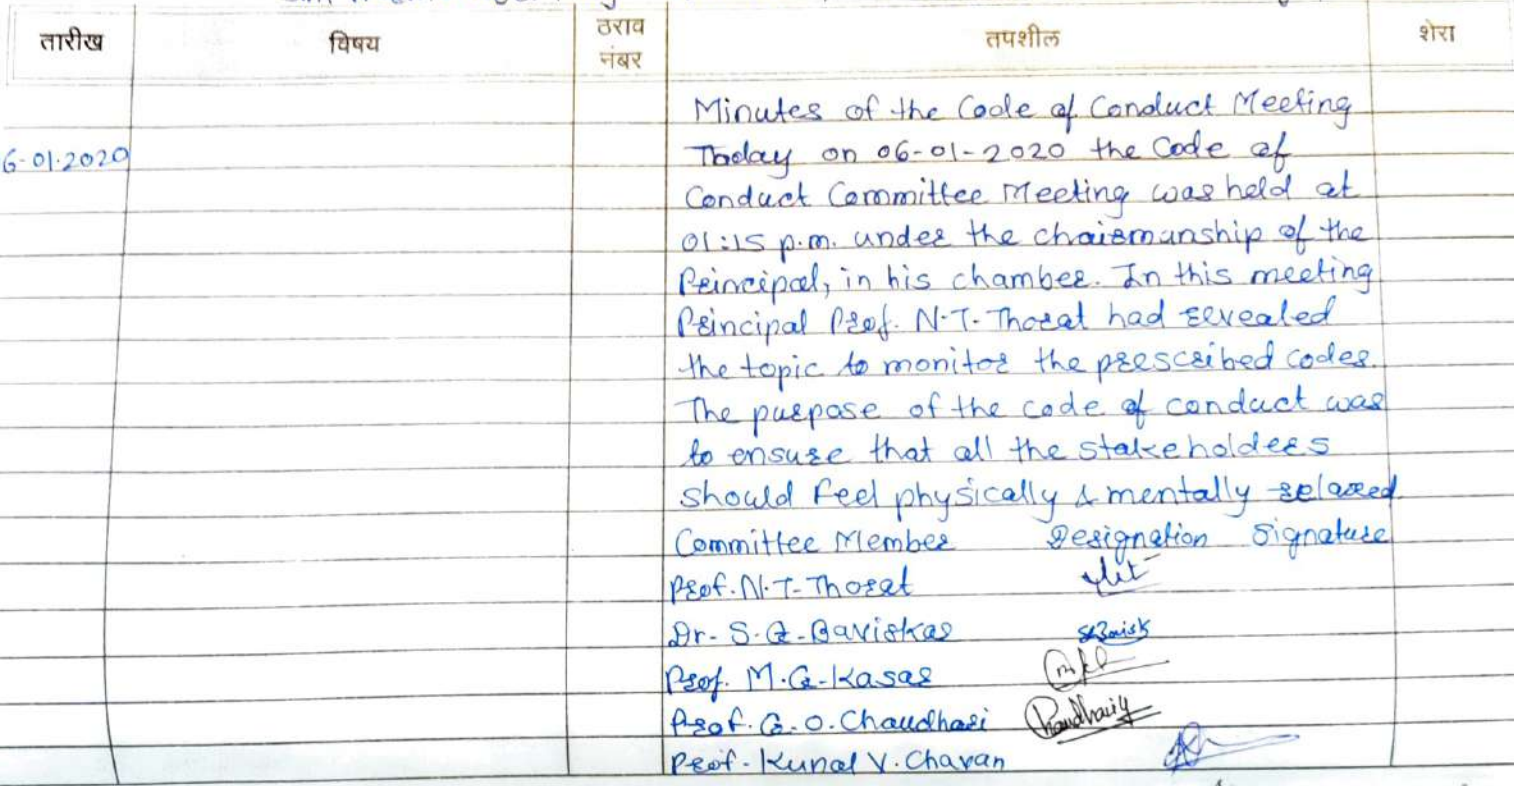 तारीख विषय ठराव नंबर तपशील शेरा
Minutes of the Code of Conduct Meeting
6-01-2020 Today on 06-01-2020 the Code of
Conduct Committee Meeting was held at
01:15 p.m. under the chairmanship of the
Principal, in his chamber. In this meeting
Principal Prof. N.T. Thorat had revealed
the topic to monitor the prescribed codes.
The purpose of the code of conduct was
to ensure that all the stakeholders
should feel physically & mentally relaxed
Committee Member Designation Signature
Prof. N.T. Thorat
Dr. S.G. Baviskar
Prof. M.G. Kasar
Prof. G.O. Chaudhari Chaudhari
Prof. Kunal V. Chavan